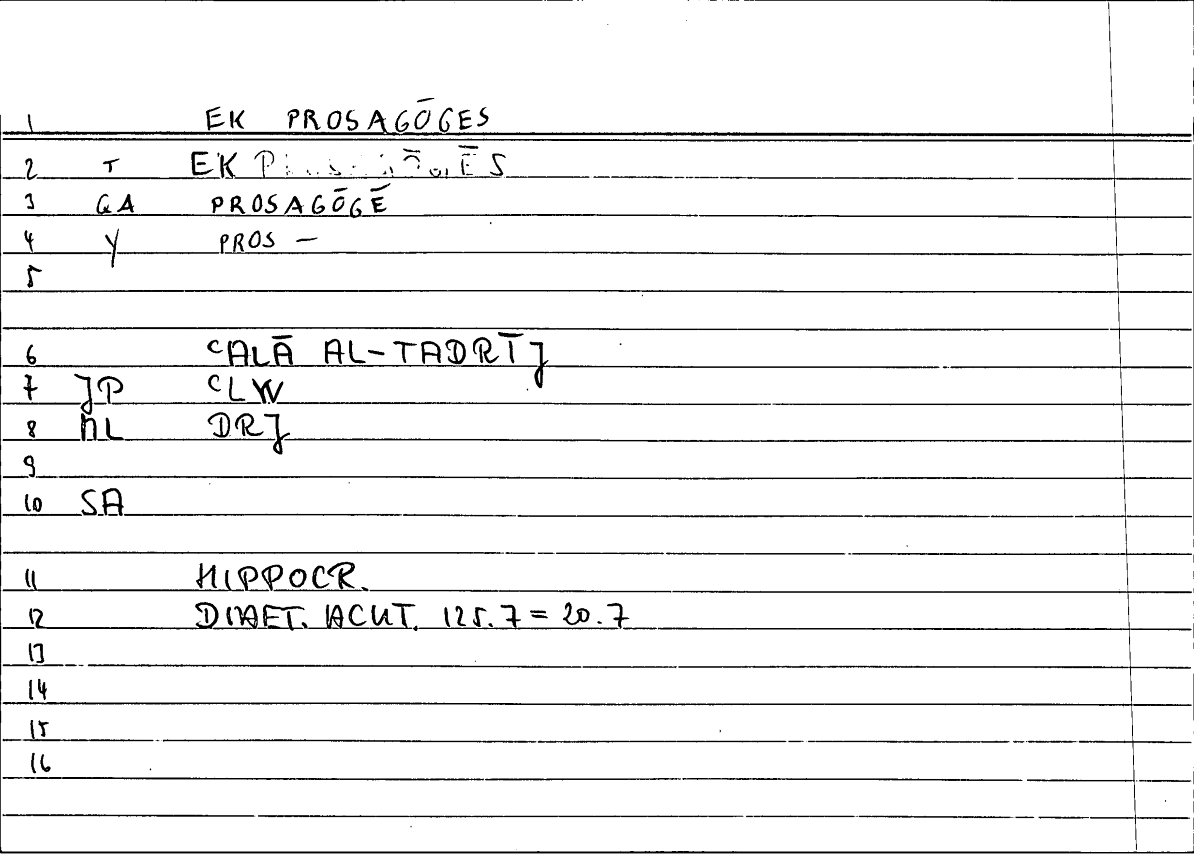 1 EK PROSAGŌGES
2 T EK
3 GA PROSAGŌGĒ
4 Y PROS —
5
6 ʿALĀ AL-TADRĪJ
7 JP ʿLW
8 ML DRJ
9
10 SA
11 HIPPOCR.
12 DIAET. ACUT. 125.7 = 20.7
13
14
15
16